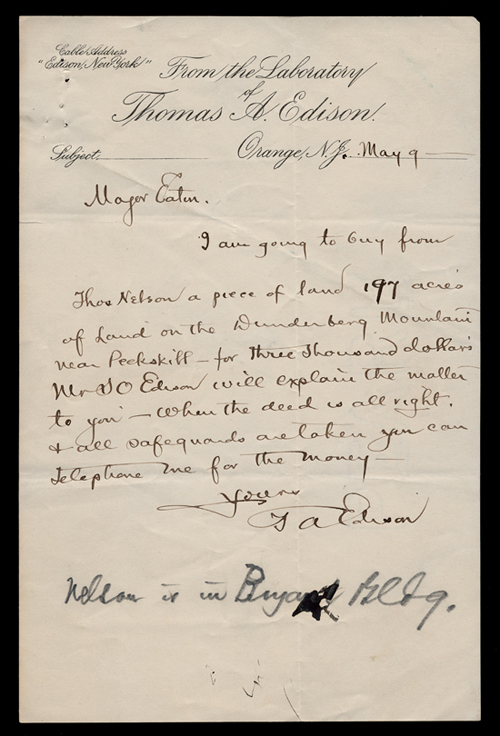 Cable Address
"Edison, New York"
From the Laboratory
of
Thomas A. Edison.
Subject,
Orange, N.J. May 9
Major Eaton.
I am going to buy from
Thos Nelson a piece of land 197 acres
of Land on the Dunderberg Mountain
near Peekskill — for three thousand dollars
Mr S O Edison will explain the matter
to you — When the deed is all right.
& all safeguards are taken you can
telephone me for the money —
Yours
T A Edison
Nelson is in Bryant Bldg.